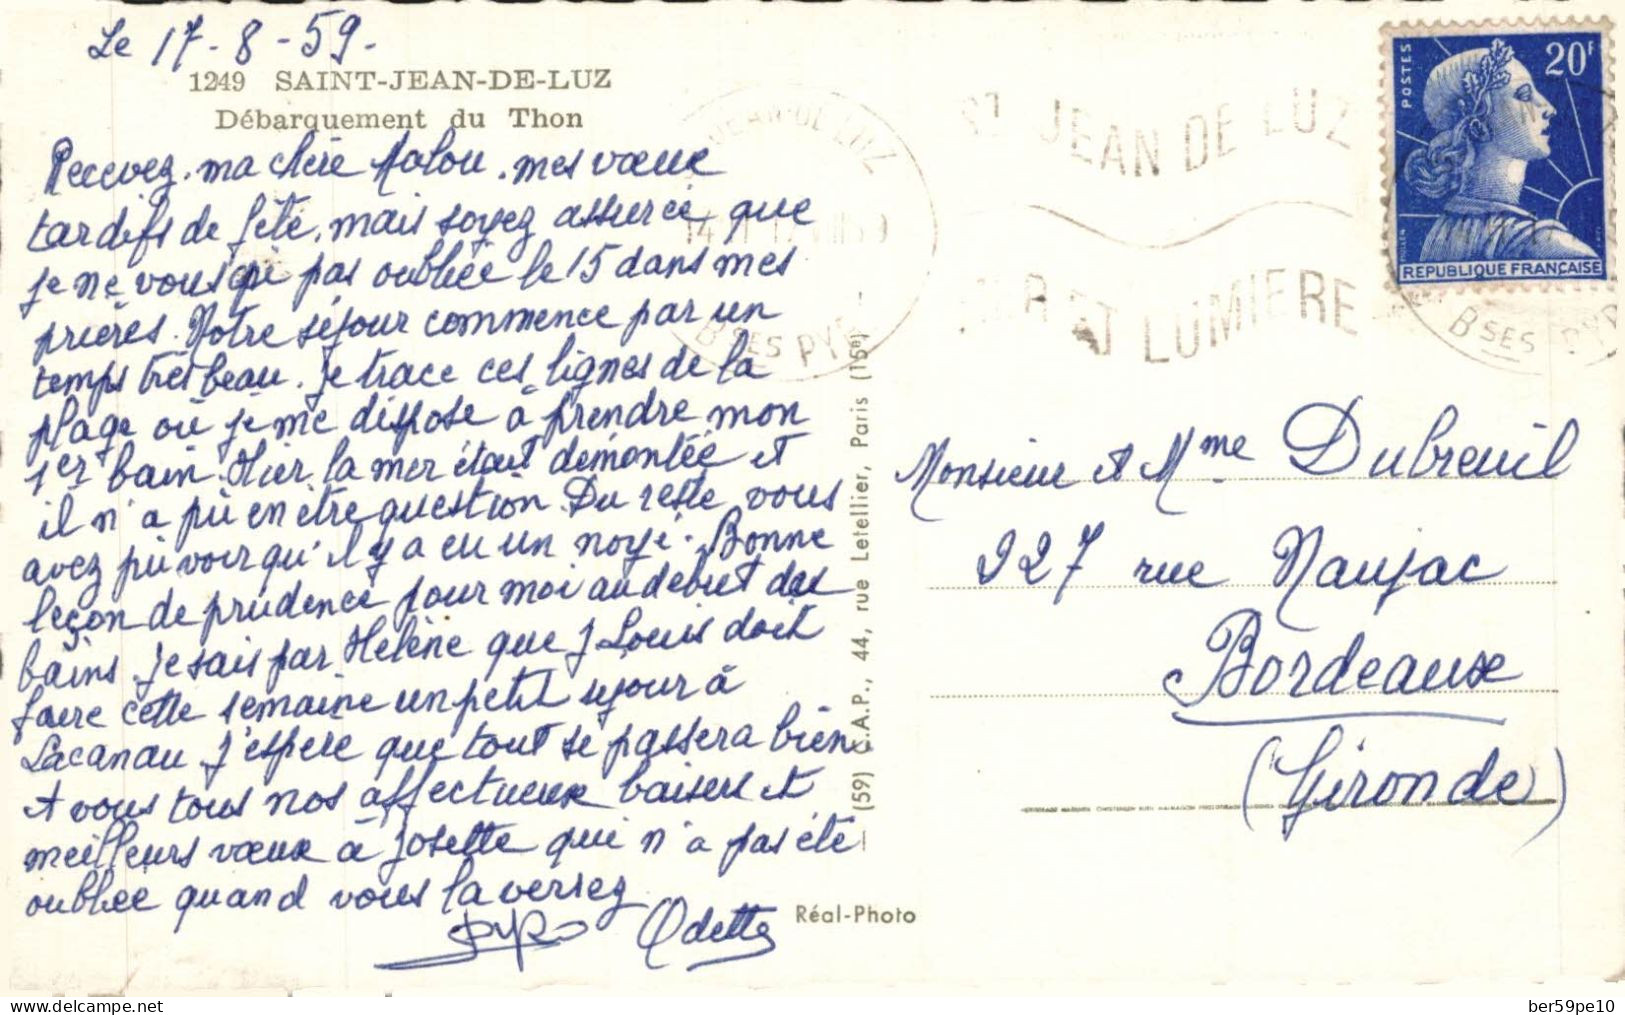 Le 17-8-59-
1249 SAINT-JEAN-DE-LUZ
Débarquement du Thon
Recevez, ma chère Malou, mes vœux
tardifs de fête, mais soyez assurée que
je ne vous ai pas oubliée le 15 dans mes
prières. Notre séjour commence par un
temps très beau. Je trace ces lignes de la
plage où je me dispose à prendre mon
1er bain. Hier, la mer était démontée et
il n'a pu en être question. Du reste vous
avez pu voir qu'il y a eu un noyé. Bonne
leçon de prudence pour moi au début des
bains. Je sais par Hélène que J Louis doit
faire cette semaine un petit séjour à
Lacanau. J'espère que tout se passera bien
et vous tous nos affectueux baisers et
meilleurs vœux à Josette qui n'a pas été
oubliée quand vous la verrez
Odette
Réal-Photo
(59) C.A.P., 44, rue Letellier, Paris (15e)
ST JEAN DE LUZ
MER ET LUMIERE
ST JEAN-DE-LUZ
BSES PYR
POSTES
20F
MULLER
REPUBLIQUE FRANÇAISE
BSES PYR
Monsieur et Mme Dubreuil
227 rue Naujac
Bordeaux
(Gironde)
ber59pe10